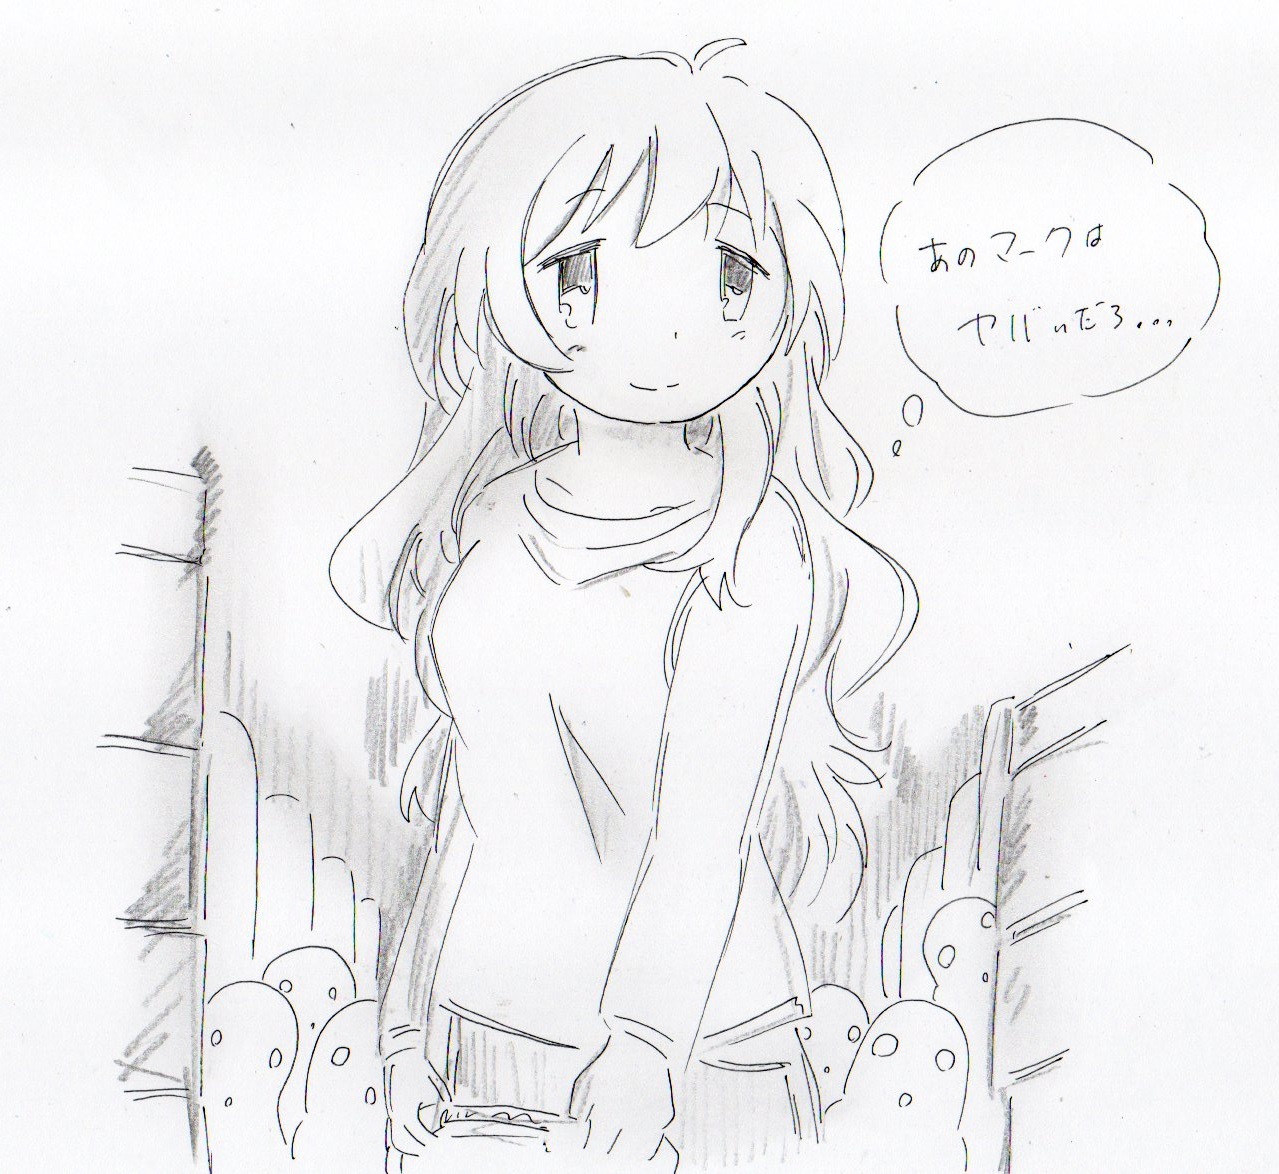 あのマークは
ヤバいだろ...